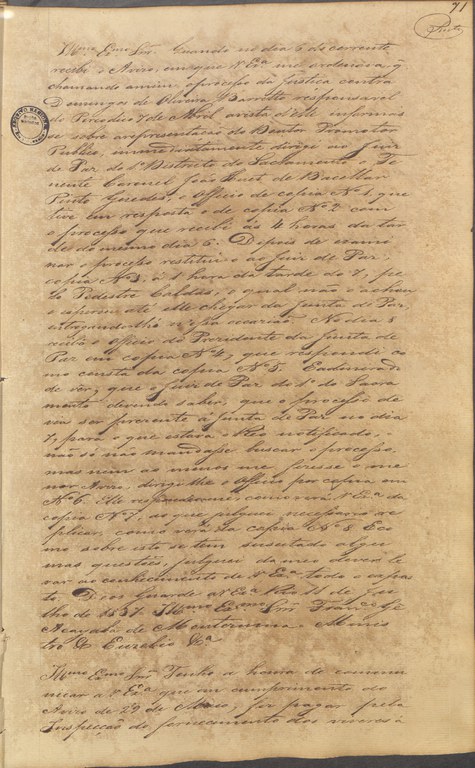 71
Illmo Exmo Snr. Quando no dia 6 do corrente
recebi o Aviso, em que V Exa me ordenava q
chamando a mim o processo da Justiça contra
Domingos de Oliveira Barretto responsavel
do Periodico 7 de Abril, a vista d'elle informas
se sobre a representação do Doutor Promotor
Publico, immediatamente dirigi ao Juiz
de Paz do 1º Districto do Sacramento o Te
nente Coronel João Huet de Bacellar
Pinto Guedes, o officio de copia Nº 1, que
tive em resposta o de copia Nº 2 com
o processo que recebi ás 4 horas da tar
de do mesmo dia 6. Depois de exami
nar o processo restitui-o ao Juiz de Paz,
copia Nº 3, á 1 hora da tarde do 7, pe
lo Pedestre Caldas, o qual não o achou
e esperou até elle chegar da Junta de Paz,
entregando-lho n'essa occasião. No dia 8
recebi o officio do Presidente da Junta de
Paz em copia Nº 4, que respondi co
mo consta da copia Nº 5. Endmirado
de ver, que o Juiz de Paz do 1º do Sacra
mento devendo saber, que o processo de
via ser presente á Junta de Paz no dia
7, para o que estava o Reo notificado,
não só não mandasse buscar o processo,
mas nem ao menos me fizesse o me
nor Aviso, dirigi-lhe o officio por copia em
Nº 6. Elle respondeu-me, como verá V Exa da
copia Nº 7, ao que julguei necessario re
plicar, como verá da copia Nº 8. E co
mo sobre isto se tem suscitado algu
mas questões, julguei do meu dever le
var ao conhecimento de V Exa todo o expos
to. Deos Guarde a V Exa Rio 11 de Ju
lho de 1837. Illmo Exmo Snr Franco Gê
Acayaba de Montezuma. Minis
tro Eusebio &a
Illmo Exmo Snr Tenho a honra de commu
nicar a V Exa que em cumprimento do
Aviso de 29 de Maio, fez pagar pela
Inspecção do fornecimento dos viveres á